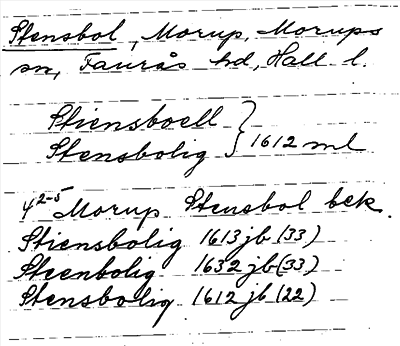 Stensbol, Morup, Morups
sn, Faurås hd, Hall l.
Stiensboell
Stensbolig } 1612 ml
4 2-5 Morup Stensbol bek.
Stiensbolig 1613 jb (33)
Steenbolig 1632 jb (33)
Stensbolig 1612 jb (22)